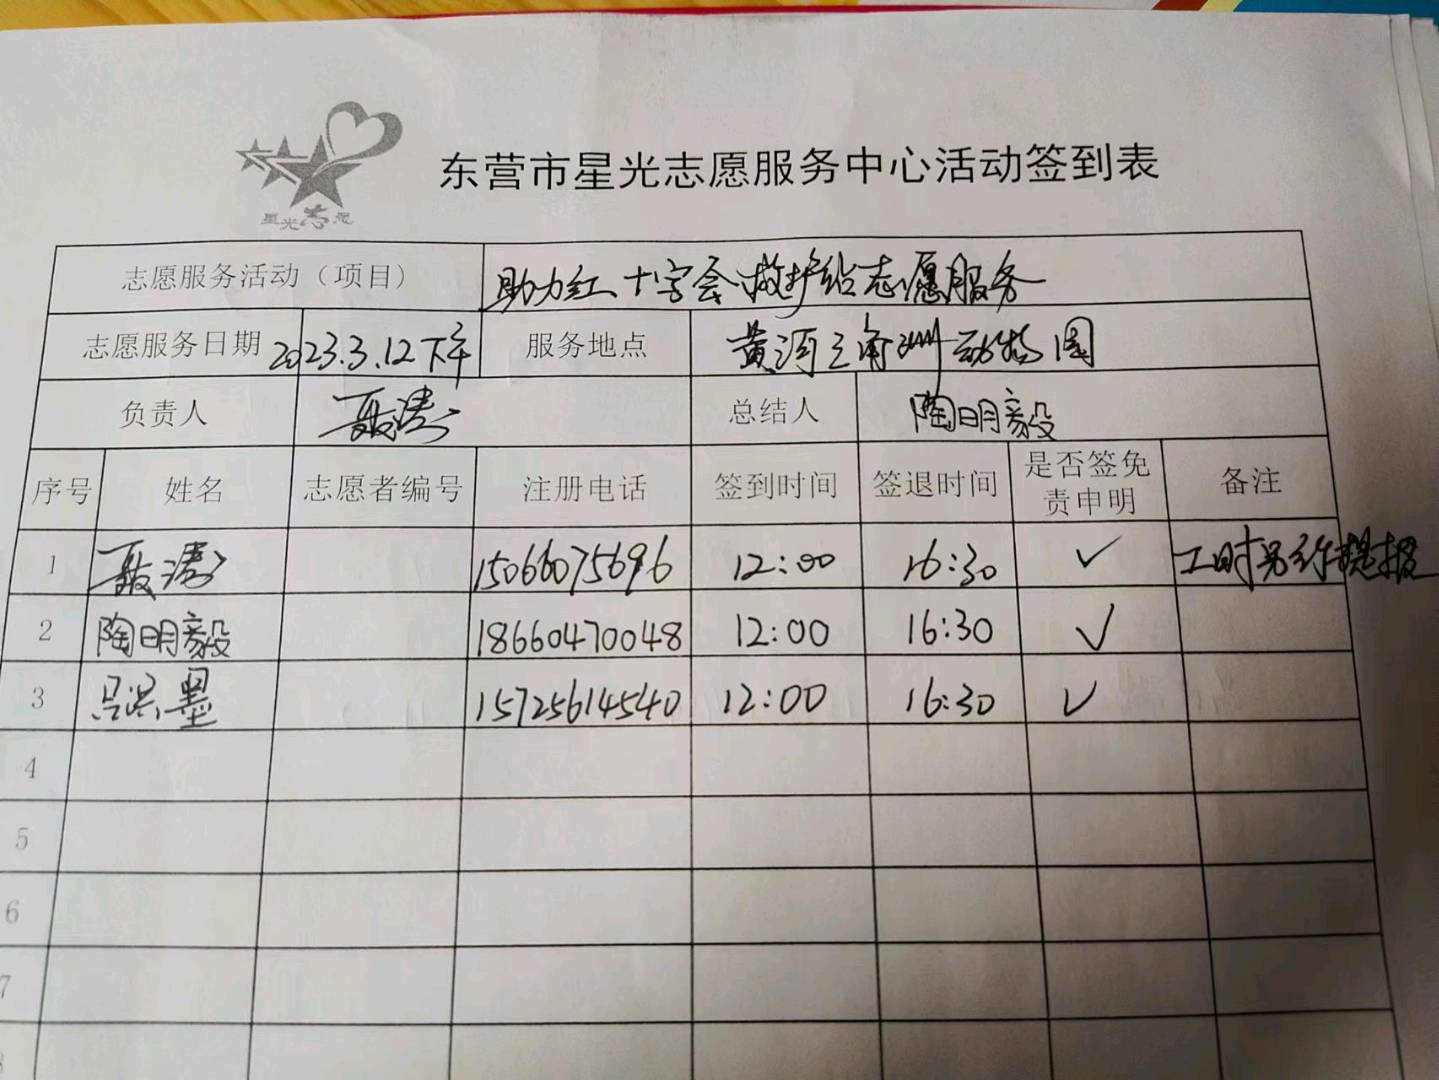 星光志愿
东营市星光志愿服务中心活动签到表
志愿服务活动（项目） 助力红十字会救护站志愿服务
志愿服务日期 2023.3.12下午 服务地点 黄河三角洲动物园
负责人 聂涛 总结人 陶明毅
序号 姓名 志愿者编号 注册电话 签到时间 签退时间 是否签免责申明 备注
1 聂涛 15066075696 12:00 16:30 ✓ 工时另行提报
2 陶明毅 18660470048 12:00 16:30 ✓
3 吕洪墨 15725614540 12:00 16:30 ✓
4
5
6
7